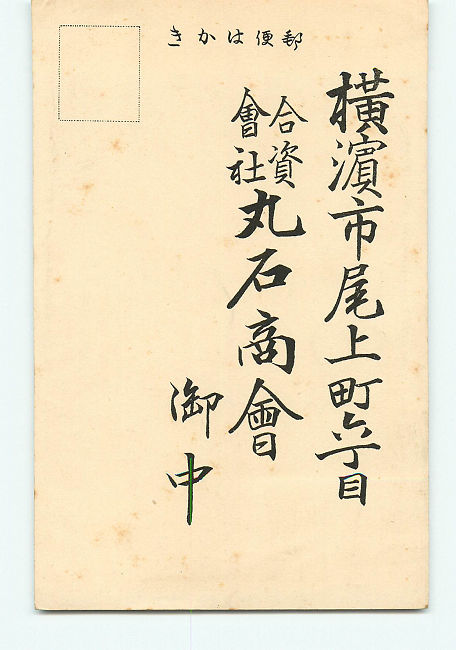 郵便はかき
横濱市尾上町六丁目
合資會社丸石商會
御中